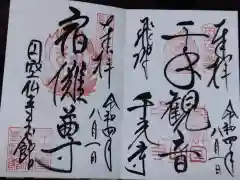 奉拝
千手観音
飛騨
千光寺
令和四年
八月一日
奉拝
宿儺尊
円空仏寺宝館
令和四年
八月一日